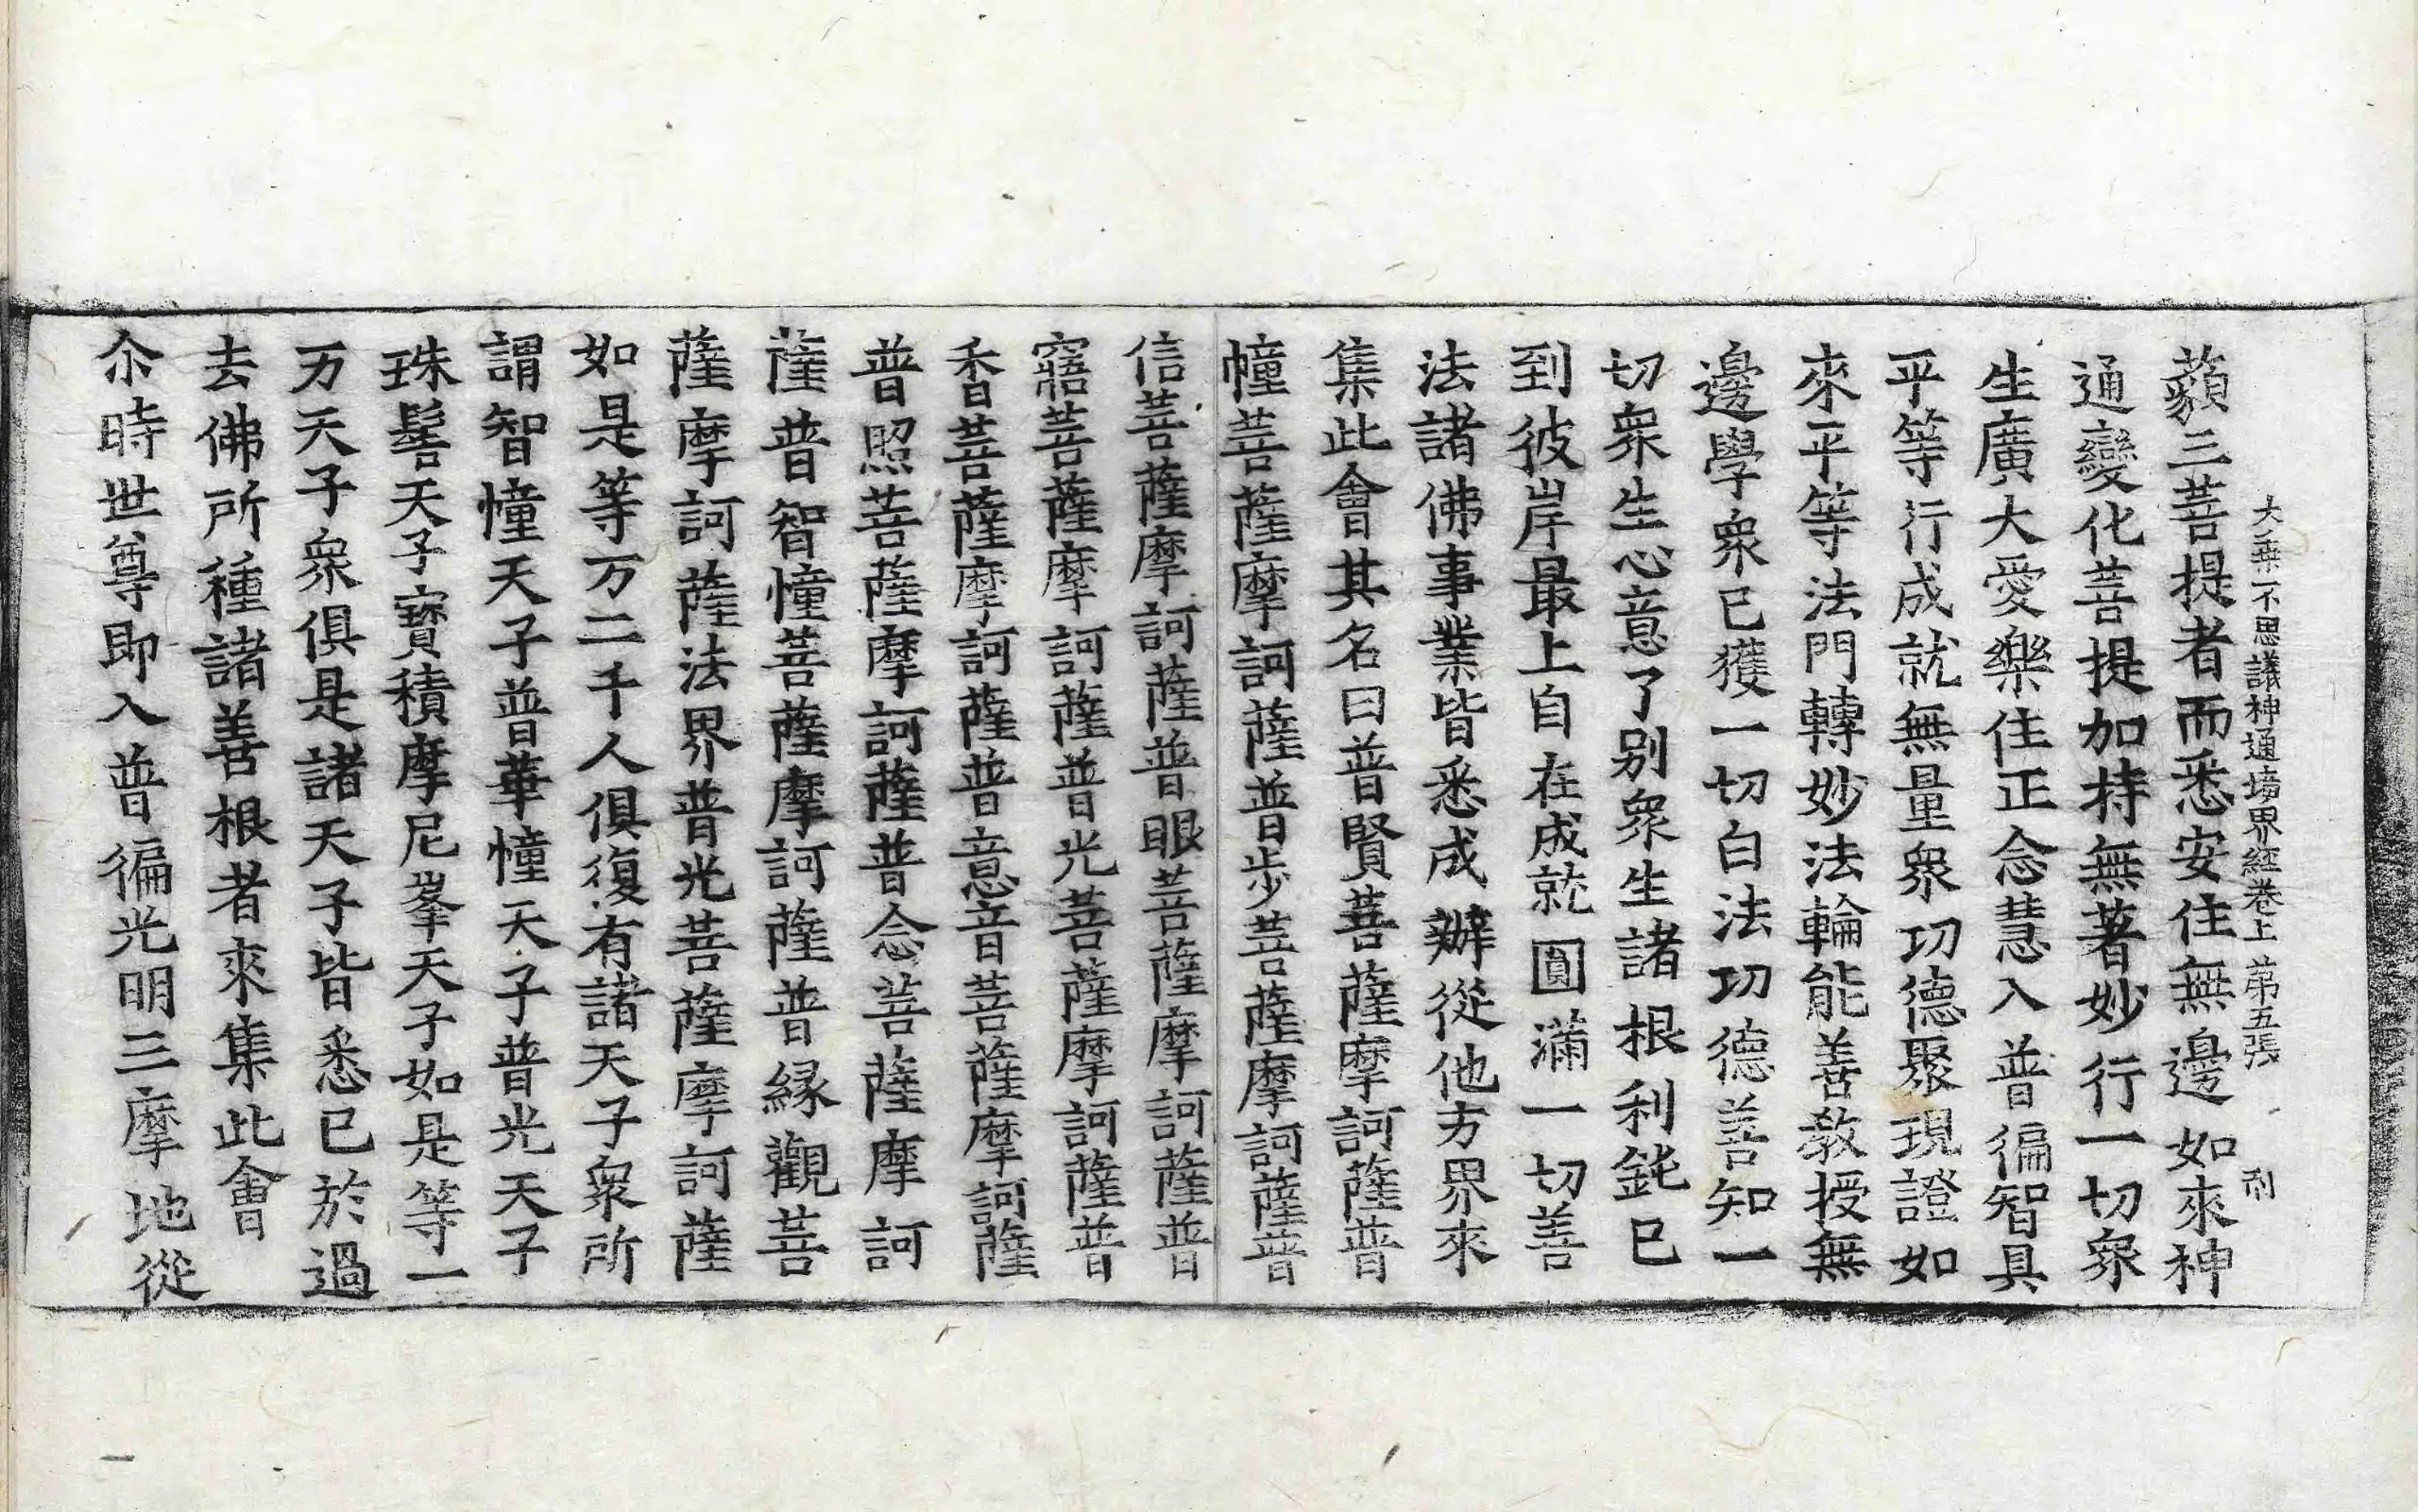 大乘不思議神通境界經卷上 第五張 刹
藐三菩提者而悉安住無邊如來神
通變化菩提加持無著妙行一切衆
生廣大愛樂住正念慧入普徧智具
平等行成就無量衆功德聚現證如
來平等法門轉妙法輪能善教授無
邊學衆已獲一切白法功德善知一
切衆生心意了别衆生諸根利鈍已
到彼岸最上自在成就圓滿一切善
法諸佛事業皆悉成辦從他方界來
集此會其名曰普賢菩薩摩訶薩普
幢菩薩摩訶薩普步菩薩摩訶薩普
信菩薩摩訶薩普眼菩薩摩訶薩普
寤菩薩摩訶薩普光菩薩摩訶薩普
香菩薩摩訶薩普意音菩薩摩訶薩
普照菩薩摩訶薩普念菩薩摩訶
薩普智幢菩薩摩訶薩普緣觀菩
薩摩訶薩法界普光菩薩摩訶薩
如是等万二千人俱復有諸天子衆所
謂智幢天子普華幢天子普光天子
珠髻天子寶積摩尼峯天子如是等一
万天子衆俱是諸天子皆悉已於過
去佛所種諸善根者來集此會
尒時世尊即入普徧光明三摩地從